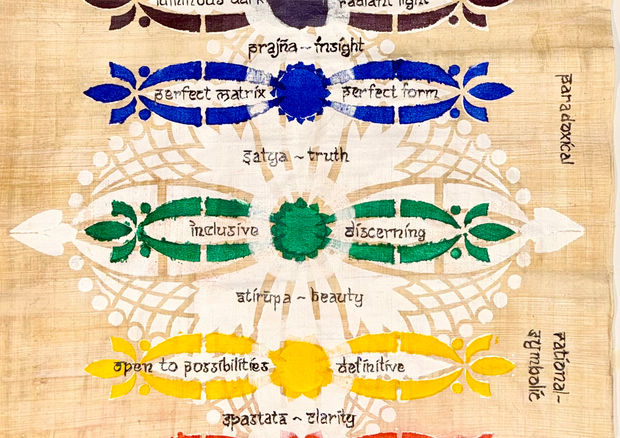 luminous dark radiant light
prajña ~ insight
perfect matrix perfect form
paradoxical
satya ~ truth
inclusive discerning
atirūpa ~ beauty
open to possibilities definitive
rational-
symbolic
spastata ~ clarity